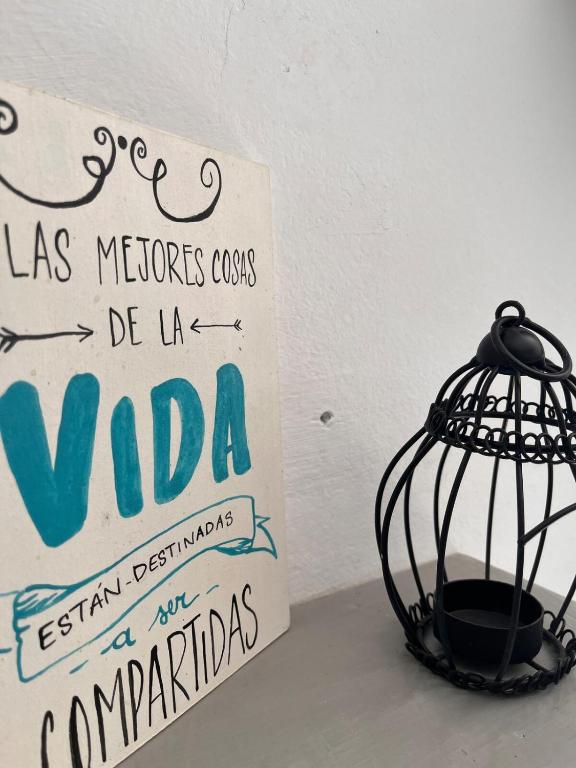 LAS MEJORES COSAS
DE LA
VIDA
ESTÁN-DESTINADAS
a ser
COMPARTIDAS